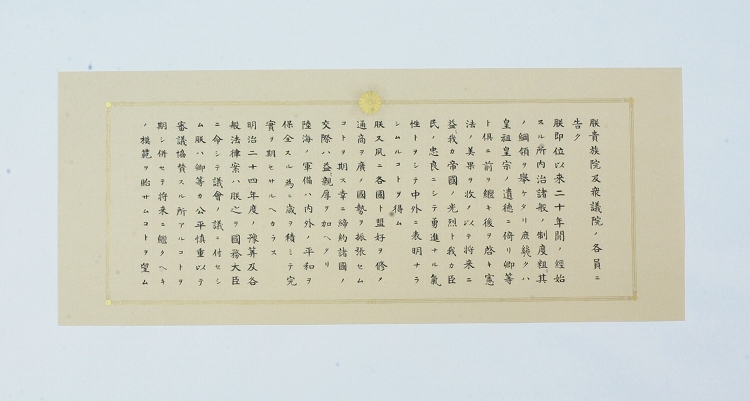 朕貴族院及衆議院ノ各員ニ
告ク
朕即位以來二十年間ノ經始
スル所内治諸般ノ制度粗其
ノ綱領ヲ擧ケタリ庶幾クハ
皇祖皇宗ノ遺德ニ倚リ卿等
ト倶ニ前ヲ繼キ後ヲ啓キ憲
法ノ美果ヲ收メ以テ將来ニ
益我カ帝國ノ光烈ト我カ臣
民ノ忠良ニシテ勇進ナル氣
性トヲシテ中外ニ表明ナラ
シムルコトヲ得ム
朕又夙ニ各國ト盟好ヲ修メ
通商ヲ廣メ國勢ヲ振張セム
コトヲ期ス幸ニ締約諸國ノ
交際ハ益親厚ヲ加ヘタリ
陸海ノ軍備ハ内外ノ平和ヲ
保全スル為ニ歳ヲ積ミテ完
實ヲ期セサルヘカラス
明治二十四年度ノ豫算及各
般法律案ハ朕之ヲ國務大臣
ニ命シテ議會ノ議ニ付セシ
ム朕ハ卿等カ公平慎重以テ
審議協賛スル所アルコトヲ
期シ併セテ将来ニ繼クヘキ
ノ模範ヲ貽サムコトヲ望ム